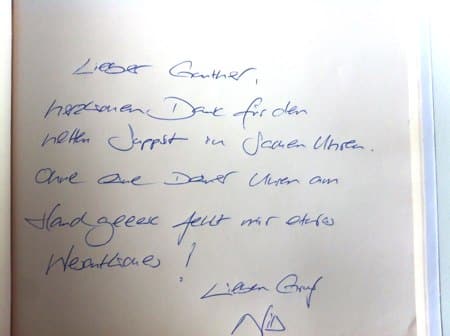 Lieber Günther,
herzlichen Dank für den
netten Support in Sachen Uhren.
Ohne eine Deiner Uhren am
Handgelenk fehlt mir etwas
Wesentliches!
Lieben Gruß